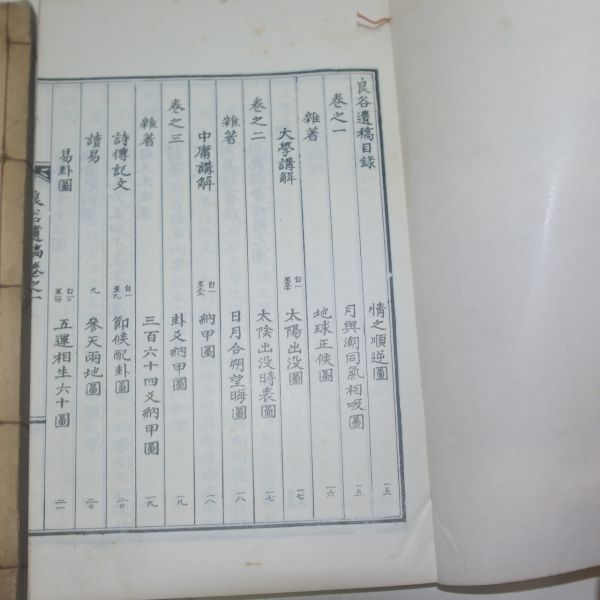 良谷遺稿目錄
卷之一
雜著
大學講解
卷之二
雜著
中庸講解
卷之三
雜著
詩傳記文
讀易 九
易卦圖
情之順逆圖 一五
月與潮同氣相吸圖 一五
地球正候圖 一六
太陽出没圖 一七
太陰出没時表圖 一七
日月合朔望晦圖 一八
納甲圖 一八
卦爻納甲圖 一九
三百六十四爻納甲圖 一九
節候配卦圖 二〇
參天兩地圖 二〇
五運相生六十圖 二一
良谷遺稿卷之一